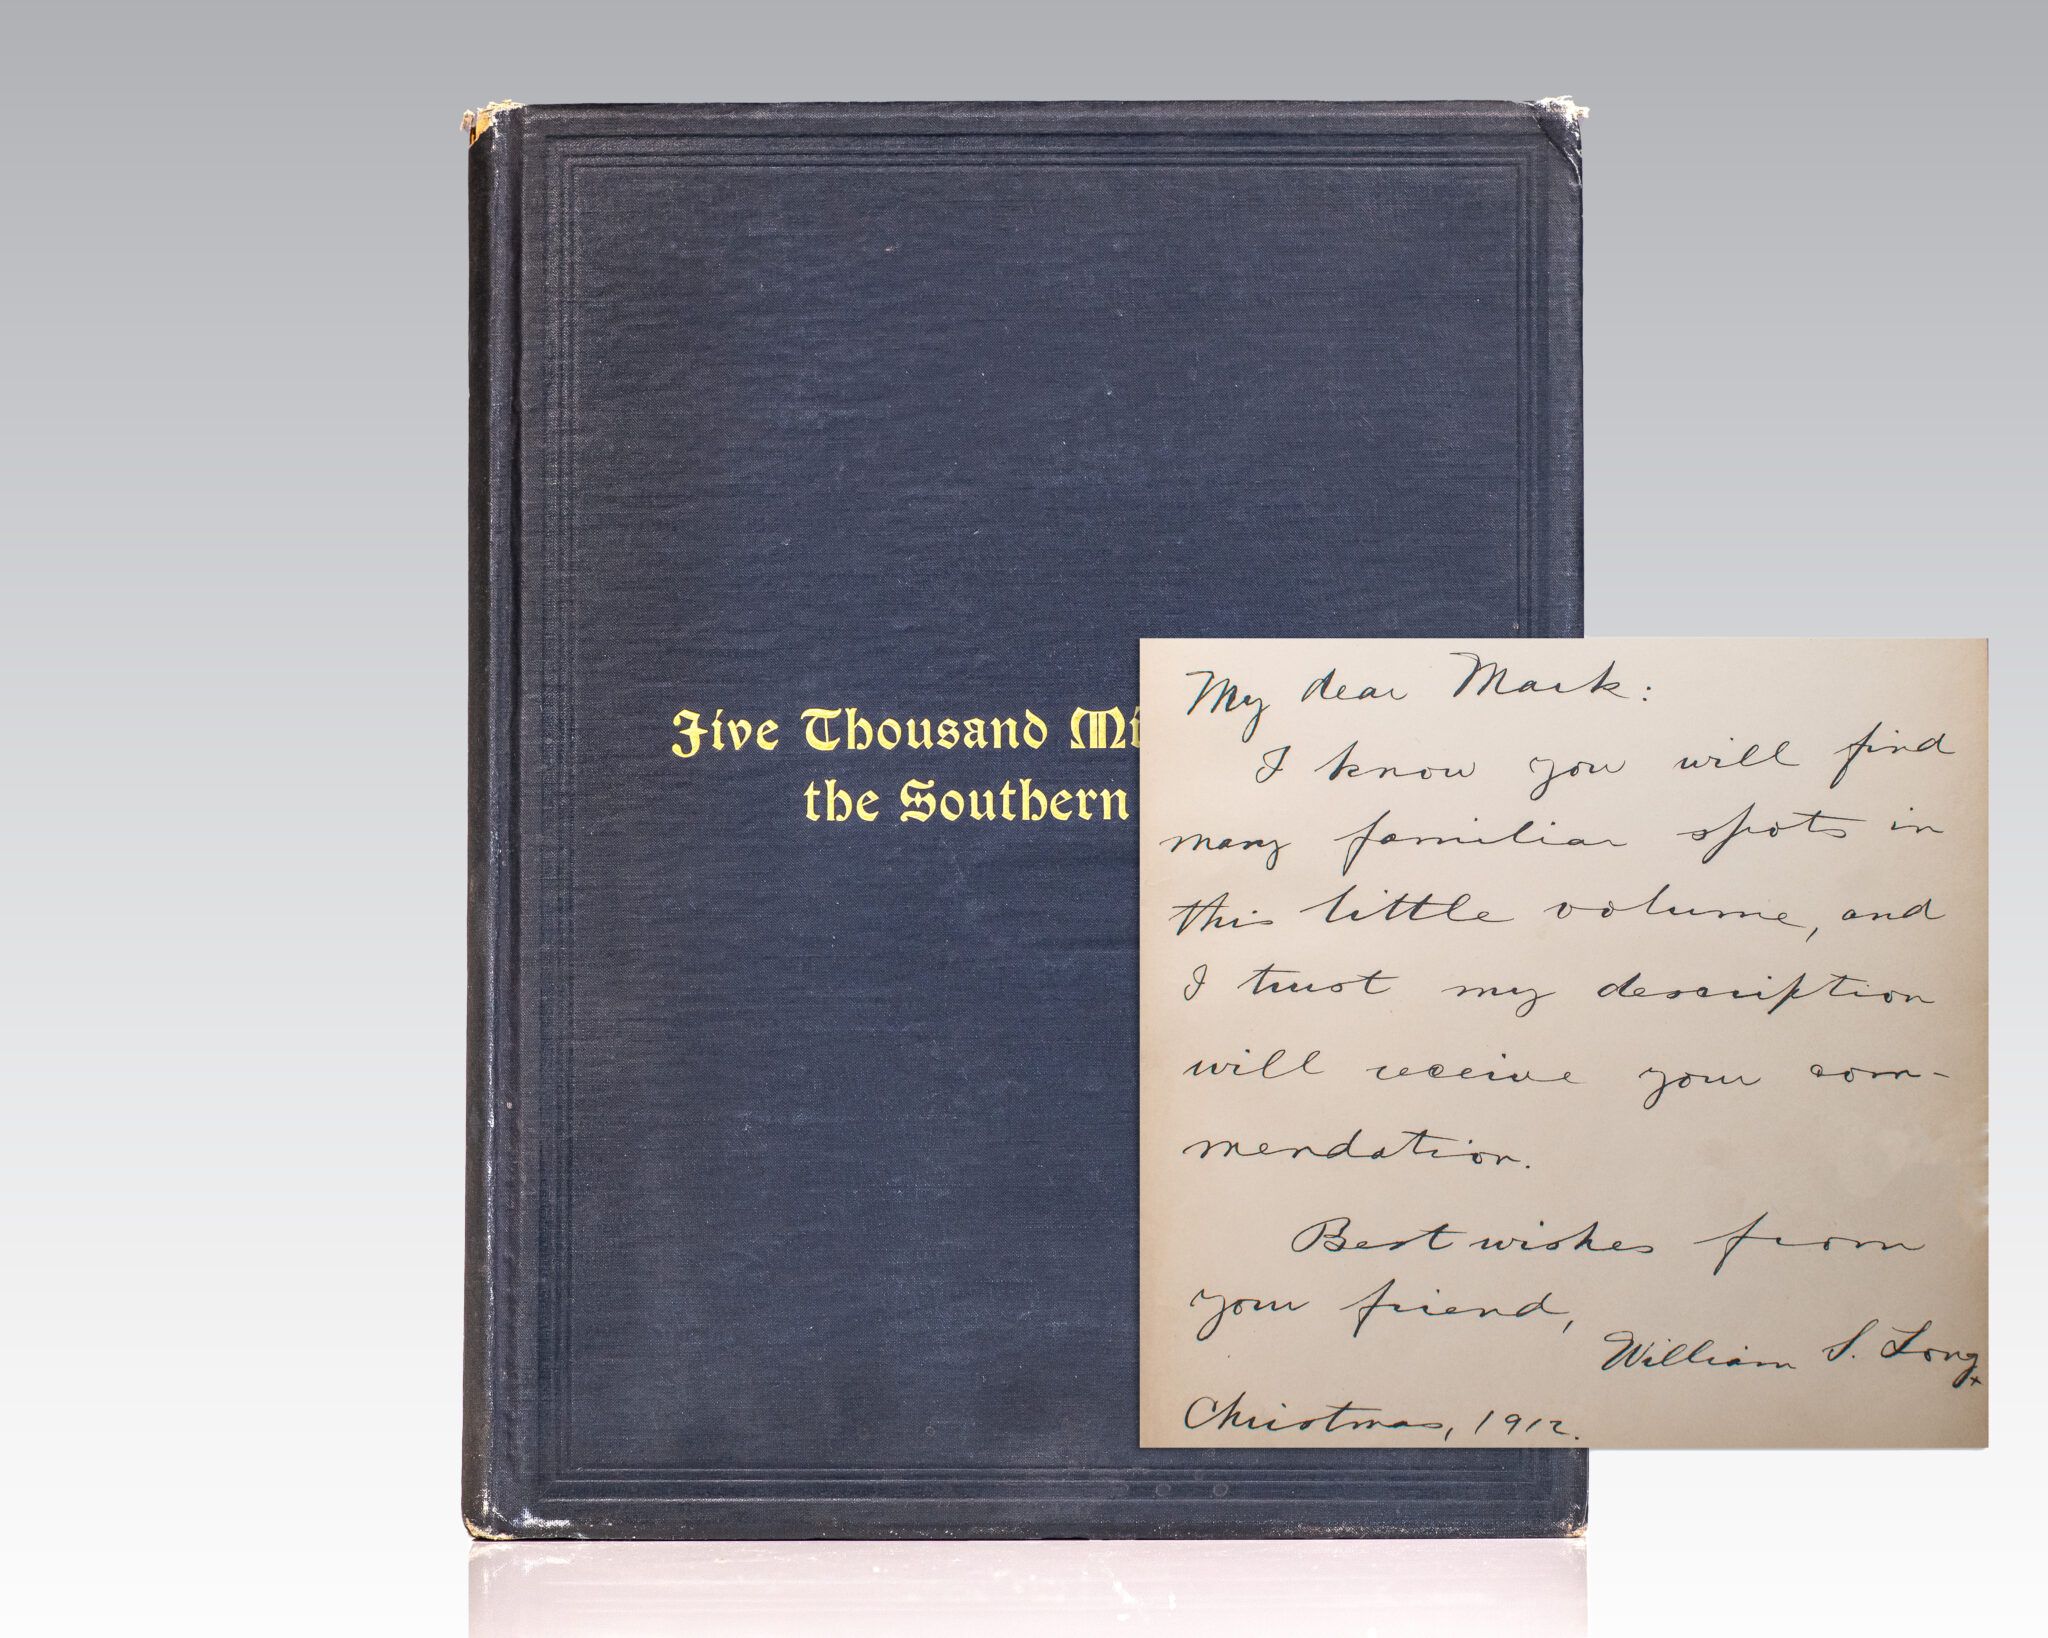 Five Thousand Mi
the Southern
My dear Mark:
I know you will find
many familiar spots in
this little volume, and
I trust my description
will receive your com-
mendation.
Best wishes from
your friend,
William S. Long
Christmas, 1912.